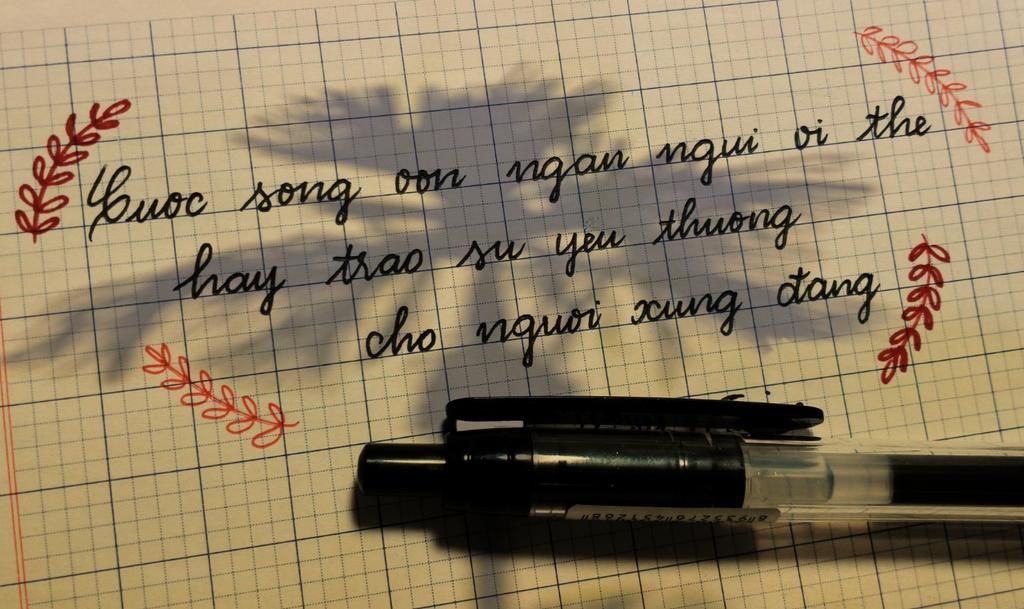 Cuoc song von ngan ngui vi the
hay trao su yeu thuong
cho nguoi xung đang